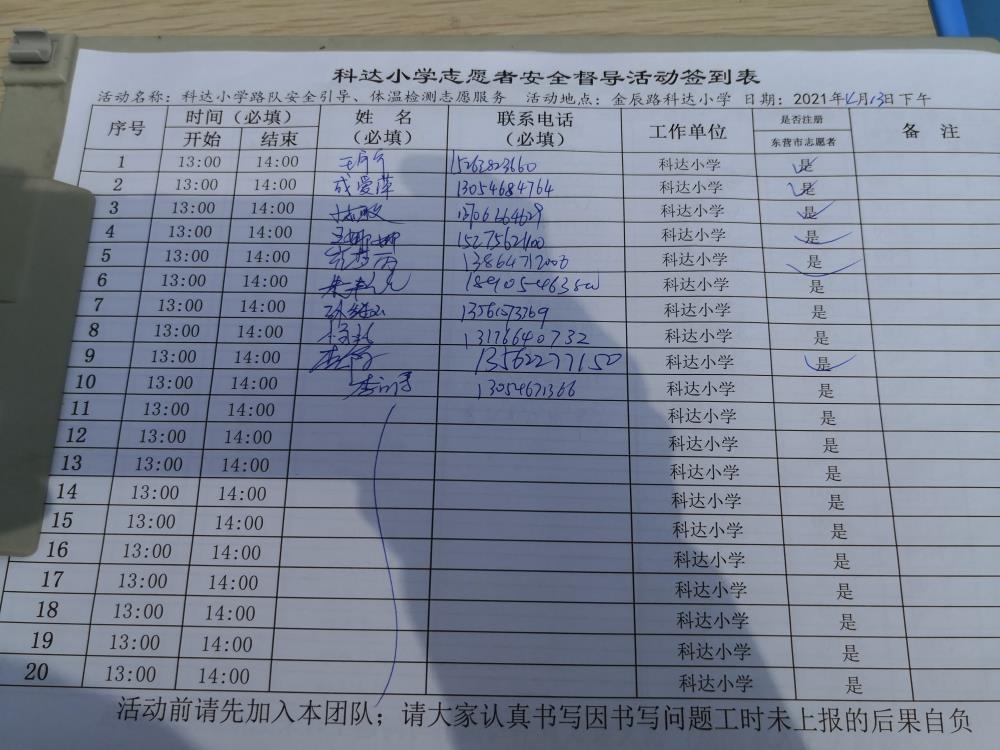 科达小学志愿者安全督导活动签到表
活动名称：科达小学路队安全引导、体温检测志愿服务 活动地点：金辰路科达小学 日期：2021年 月13日下午
序号 时间（必填） 姓 名（必填） 联系电话（必填） 工作单位 是否注册东营市志愿者 备 注
开始 结束
1 13:00 14:00 15263823660 科达小学 是
2 13:00 14:00 成爱萍 13054684764 科达小学 是
3 13:00 14:00 科达小学 是
4 13:00 14:00 王娜娜 15275621100 科达小学 是
5 13:00 14:00 13864712000 科达小学 是
6 13:00 14:00 科达小学 是
7 13:00 14:00 13561073769 科达小学 是
8 13:00 14:00 13176640732 科达小学 是
9 13:00 14:00 13562277150 科达小学 是
10 13:00 14:00 13054671366 科达小学 是
11 13:00 14:00 科达小学 是
12 13:00 14:00 科达小学 是
13 13:00 14:00 科达小学 是
14 13:00 14:00 科达小学 是
15 13:00 14:00 科达小学 是
16 13:00 14:00 科达小学 是
17 13:00 14:00 科达小学 是
18 13:00 14:00 科达小学 是
19 13:00 14:00 科达小学 是
20 13:00 14:00 科达小学 是
活动前请先加入本团队；请大家认真书写因书写问题工时未上报的后果自负